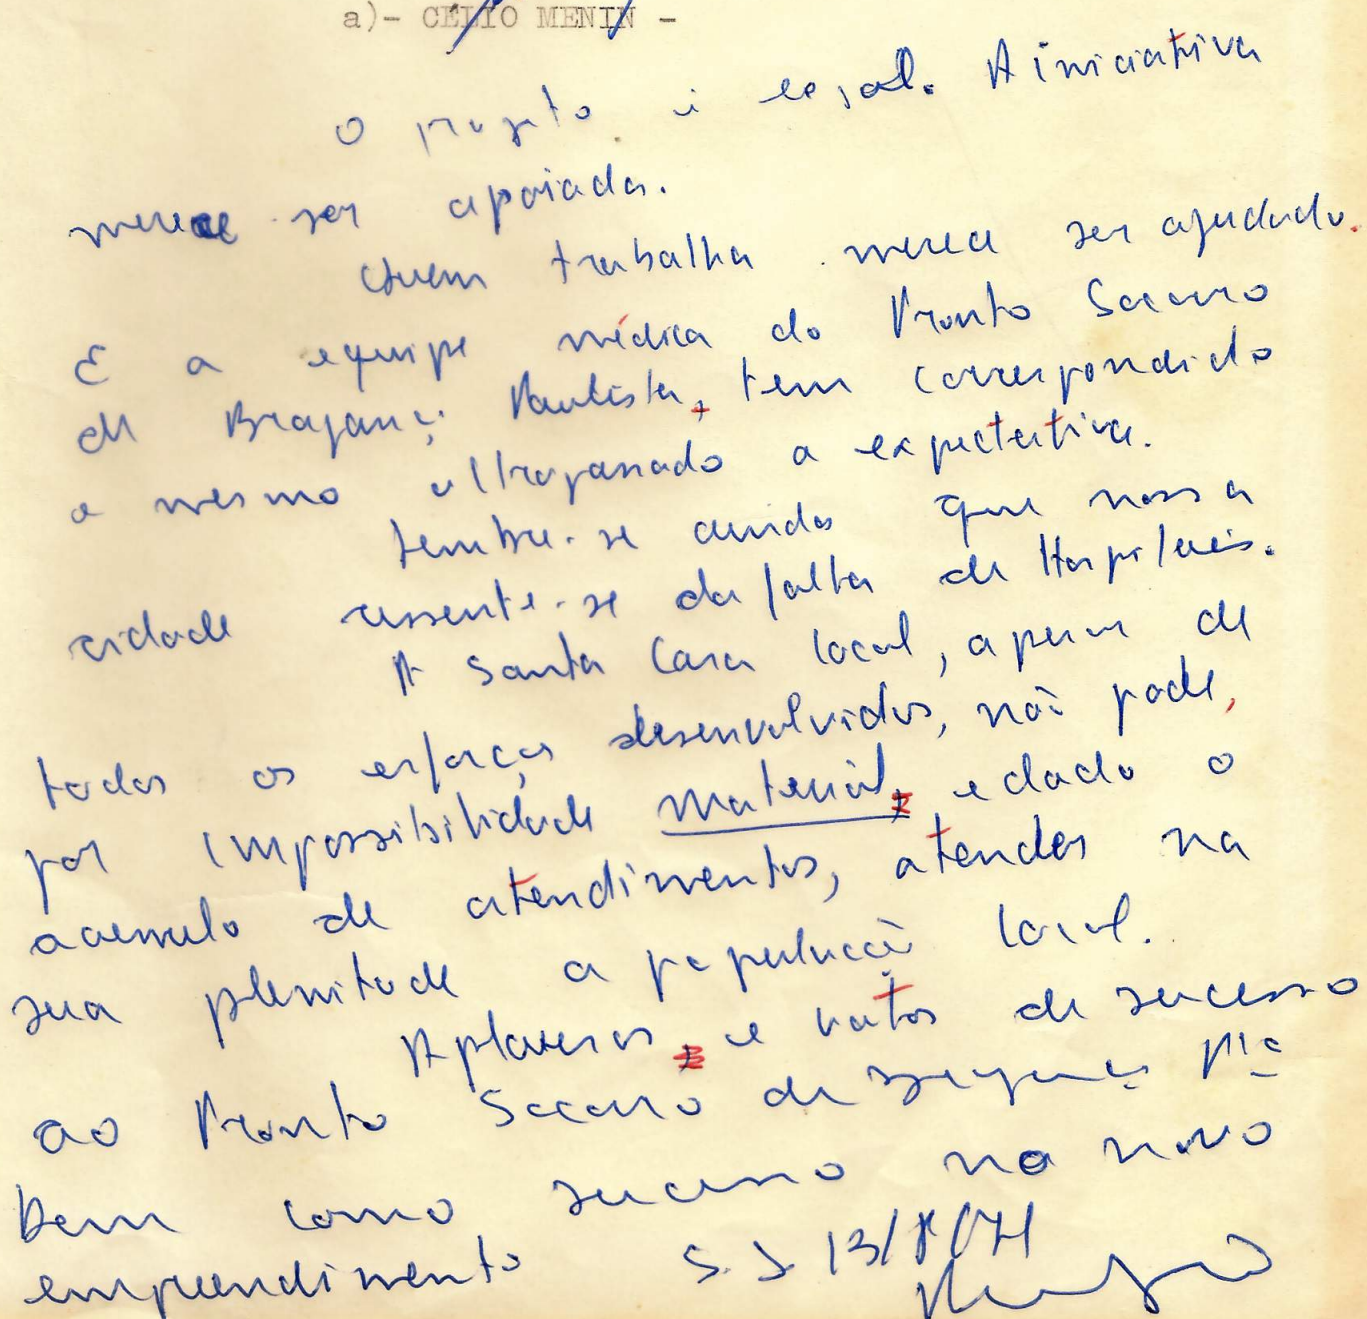 a)- CÉLIO MENIN -
O projeto é legal. A iniciativa
merece ser apoiada.
Quem trabalha merece ser ajudado.
E a equipe médica do Pronto Socorro
de Bragança Paulista, tem correspondido
e mesmo ultrapassado a expectativa.
Lembre-se ainda que nossa
cidade ressente-se da falta de Hospitais.
A Santa Casa local, apesar de
todos os esforços desenvolvidos, não pode,
por impossibilidade material, e dado o
acumulo de atendimentos, atender na
sua plenitude a população local.
Aplausos e votos de sucesso
ao Pronto Socorro de Bragança Pta
bem como sucesso no novo
empreendimento S. S. 13/8/71